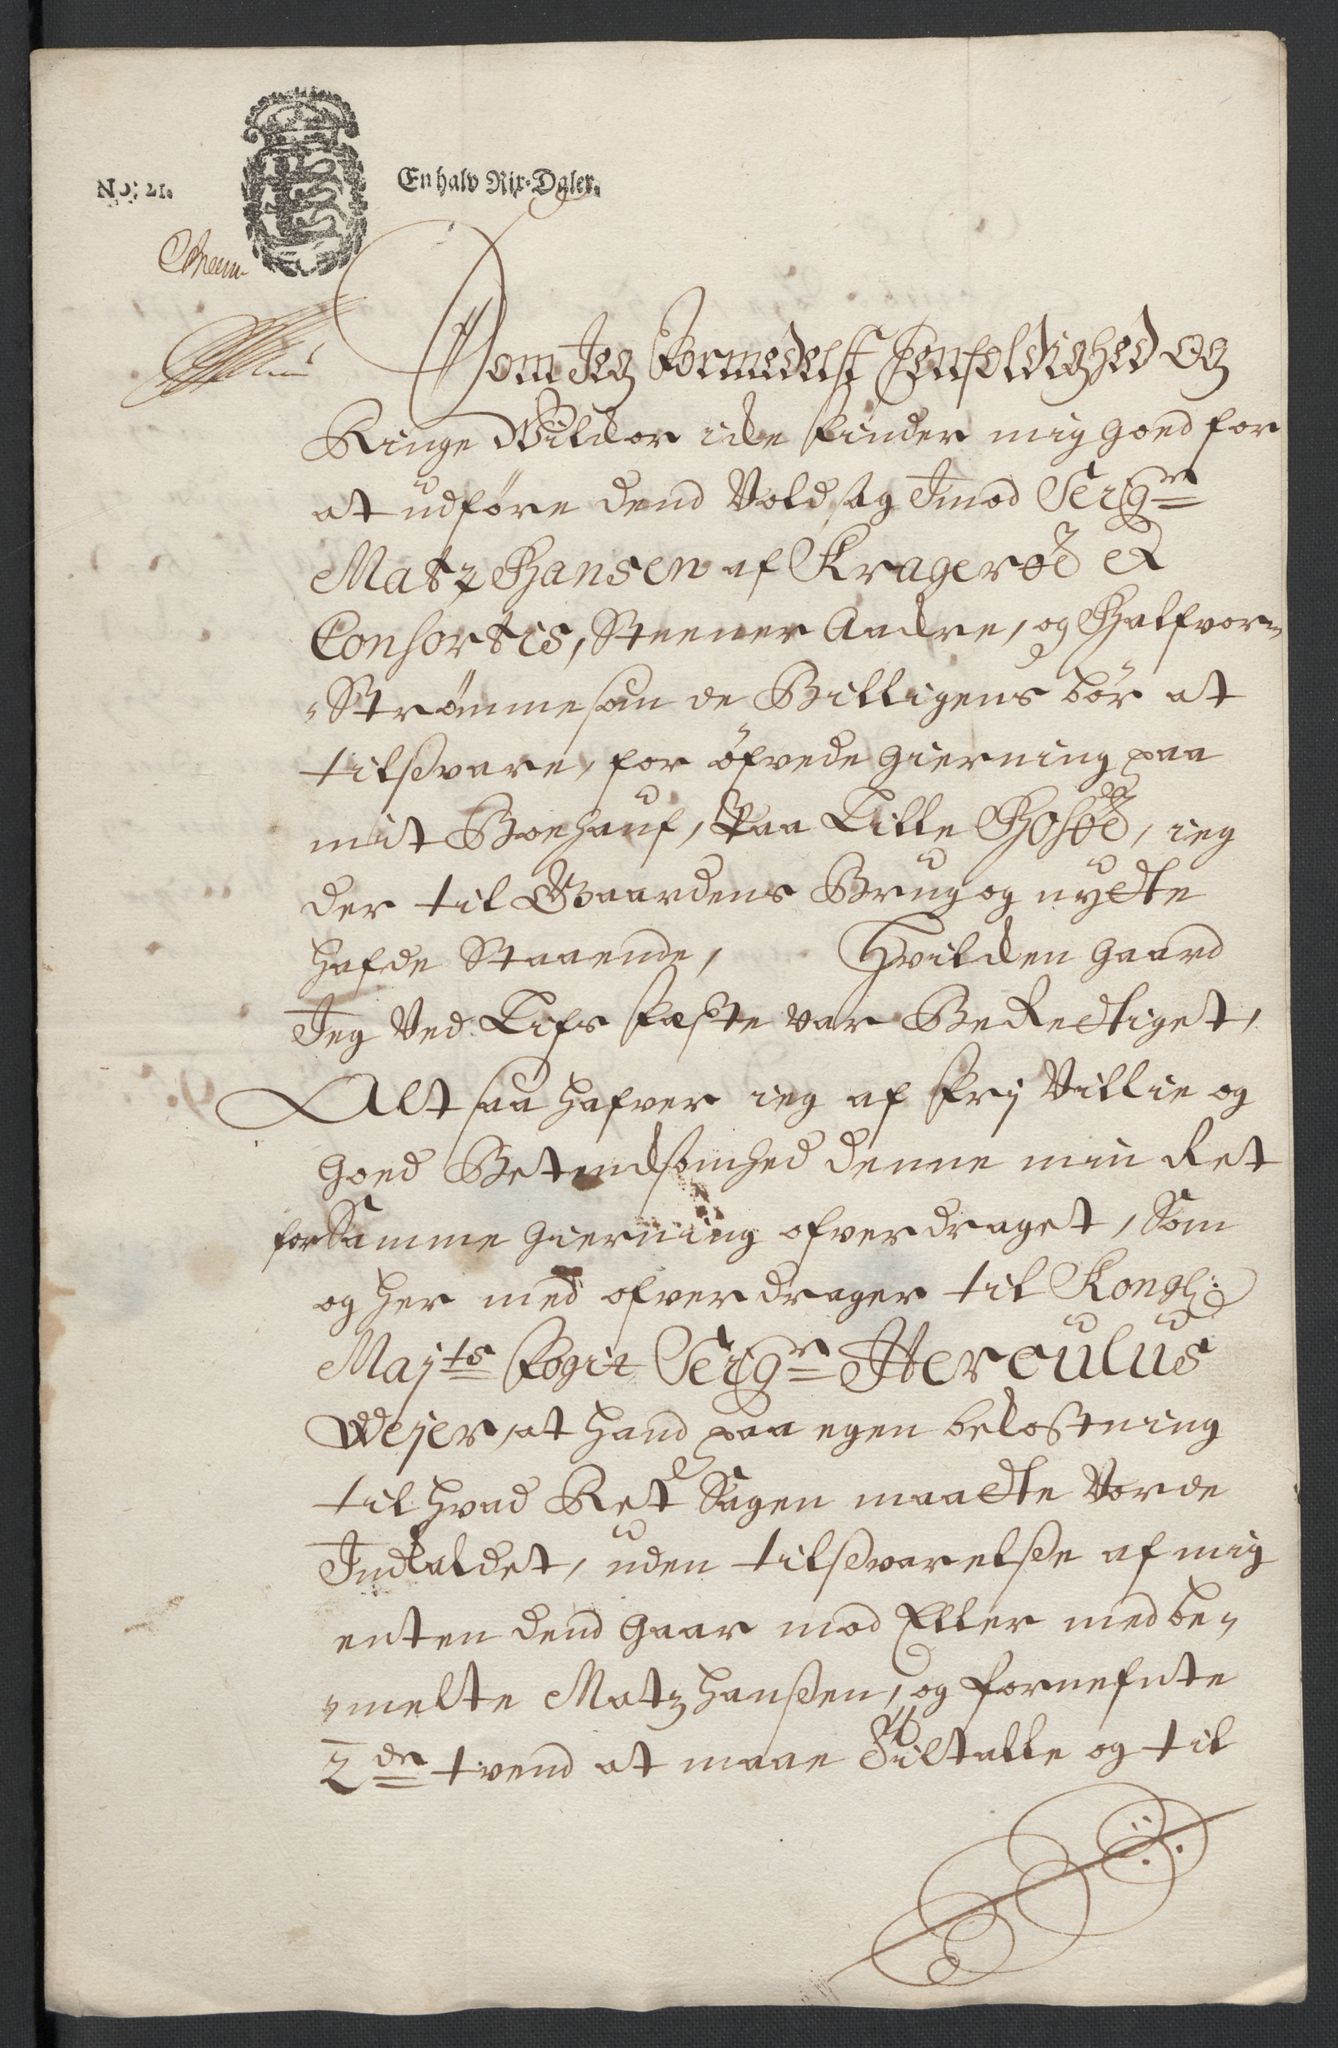 No: 21. En halv Rix-Daler.
Som Jeg Formedelst Eenfoldighed og
Ringe Wilckor icke finder mig goed for
at udføre dend Voldsag Imod Seigr
Matz Hansen af Kragerøe &
Consortis, Steener Aadre, og Halfvor
Strømme som de Billigens bør at
tilsvare, for øfvede gierning paa
mit Boehauf, Paa Lille Hosøe, ieg
der til Gaardens Brug og nytte
hafde Staaende, Hvilcken gaard
Jeg Ved Lifs fæste var Berettiget,
Alt saa hafver ieg af frij Villie og
goed Betencksomhed denne min Ret
for Samme gierning ofverdraget, Som
og her med ofverdrager til Kongl:
Maj:ts Fogit Seigr Herculus
Weyer, at hand paa egen bekostning
til hvad Ret Sagen maatte Vorde
Indkaldet, uden tilsvarelse af mig
enten dend gaar mod Eller med be-
melte Matz hansen, og fornefnte
2de tvend at maae Tiltalle og til